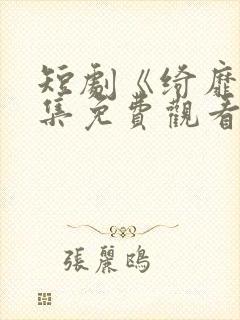 短劇《綺靡
集免費觀看
張麗鴎